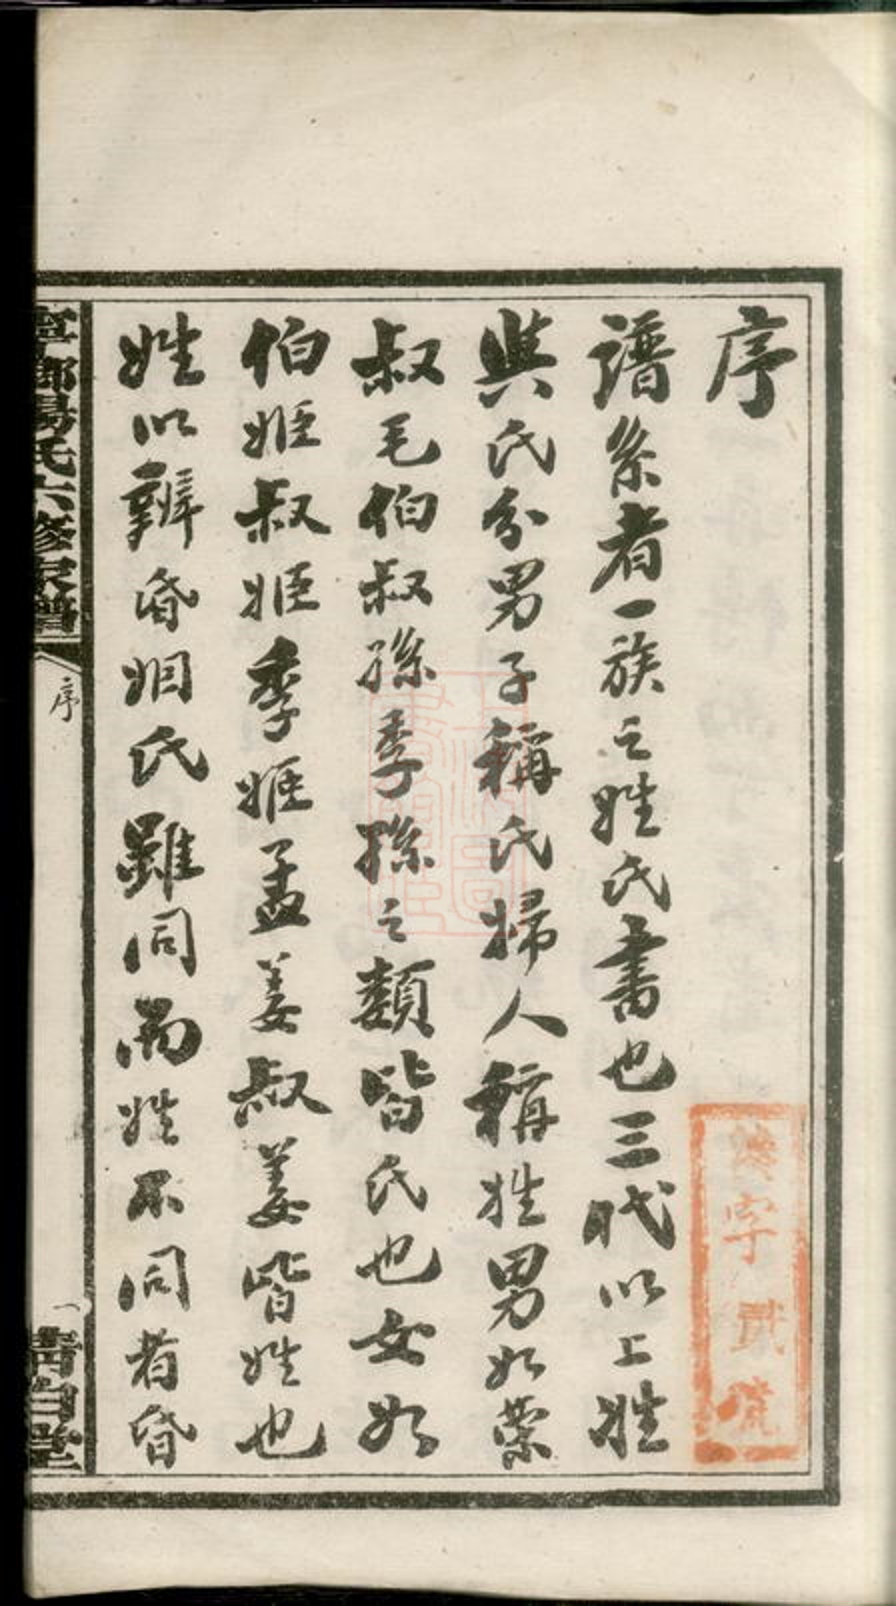 序
譜系者一族之姓氏書也三代以上姓
與氏分男子稱氏婦人稱姓男如榮
叔毛伯叔孫季孫之類皆氏也女如
伯姬叔姬季姬孟姜叔姜皆姓也
姓以辨昏姻氏雖同而姓不同者昏
寧鄉湯氏六修家譜
序
一
堂
字貳號